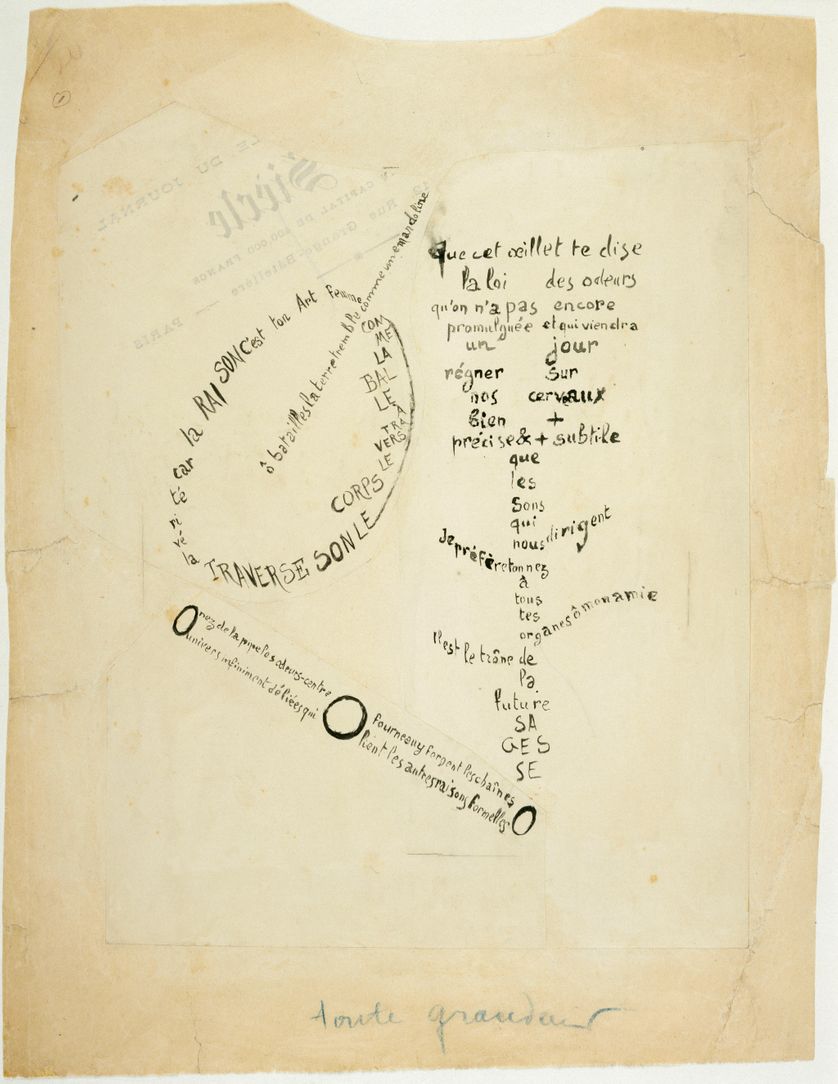 1
LE DU JOURNAL
Siècle
CAPITAL DE 400.000 FRANCS
Rue Grange-Batelière
PARIS
ô batailles la terre tremble comme une mandoline
COM
ME
LA
BAL
LE
À
TRA
VERS
LE
CORPS
LE
SON
TRAVERSE
la vérité car la RAISON C'est ton Art Femme
que cet œillet te dise
la loi des odeurs
qu'on n'a pas encore
promulguée et qui viendra
un jour
régner sur
nos cerveaux
bien +
précise & + subtile
que
les
sons
qui
nous dirigent
Je préfère ton nez
à
tous
tes
organes ô mon amie
Il est le trône de
la
future
SA
GES
SE
O nez de la pipe les odeurs-centre O fourneau y forgent les chaînes O
univers infiniment déliées qui lient les autres raisons formelles
toute grandeur